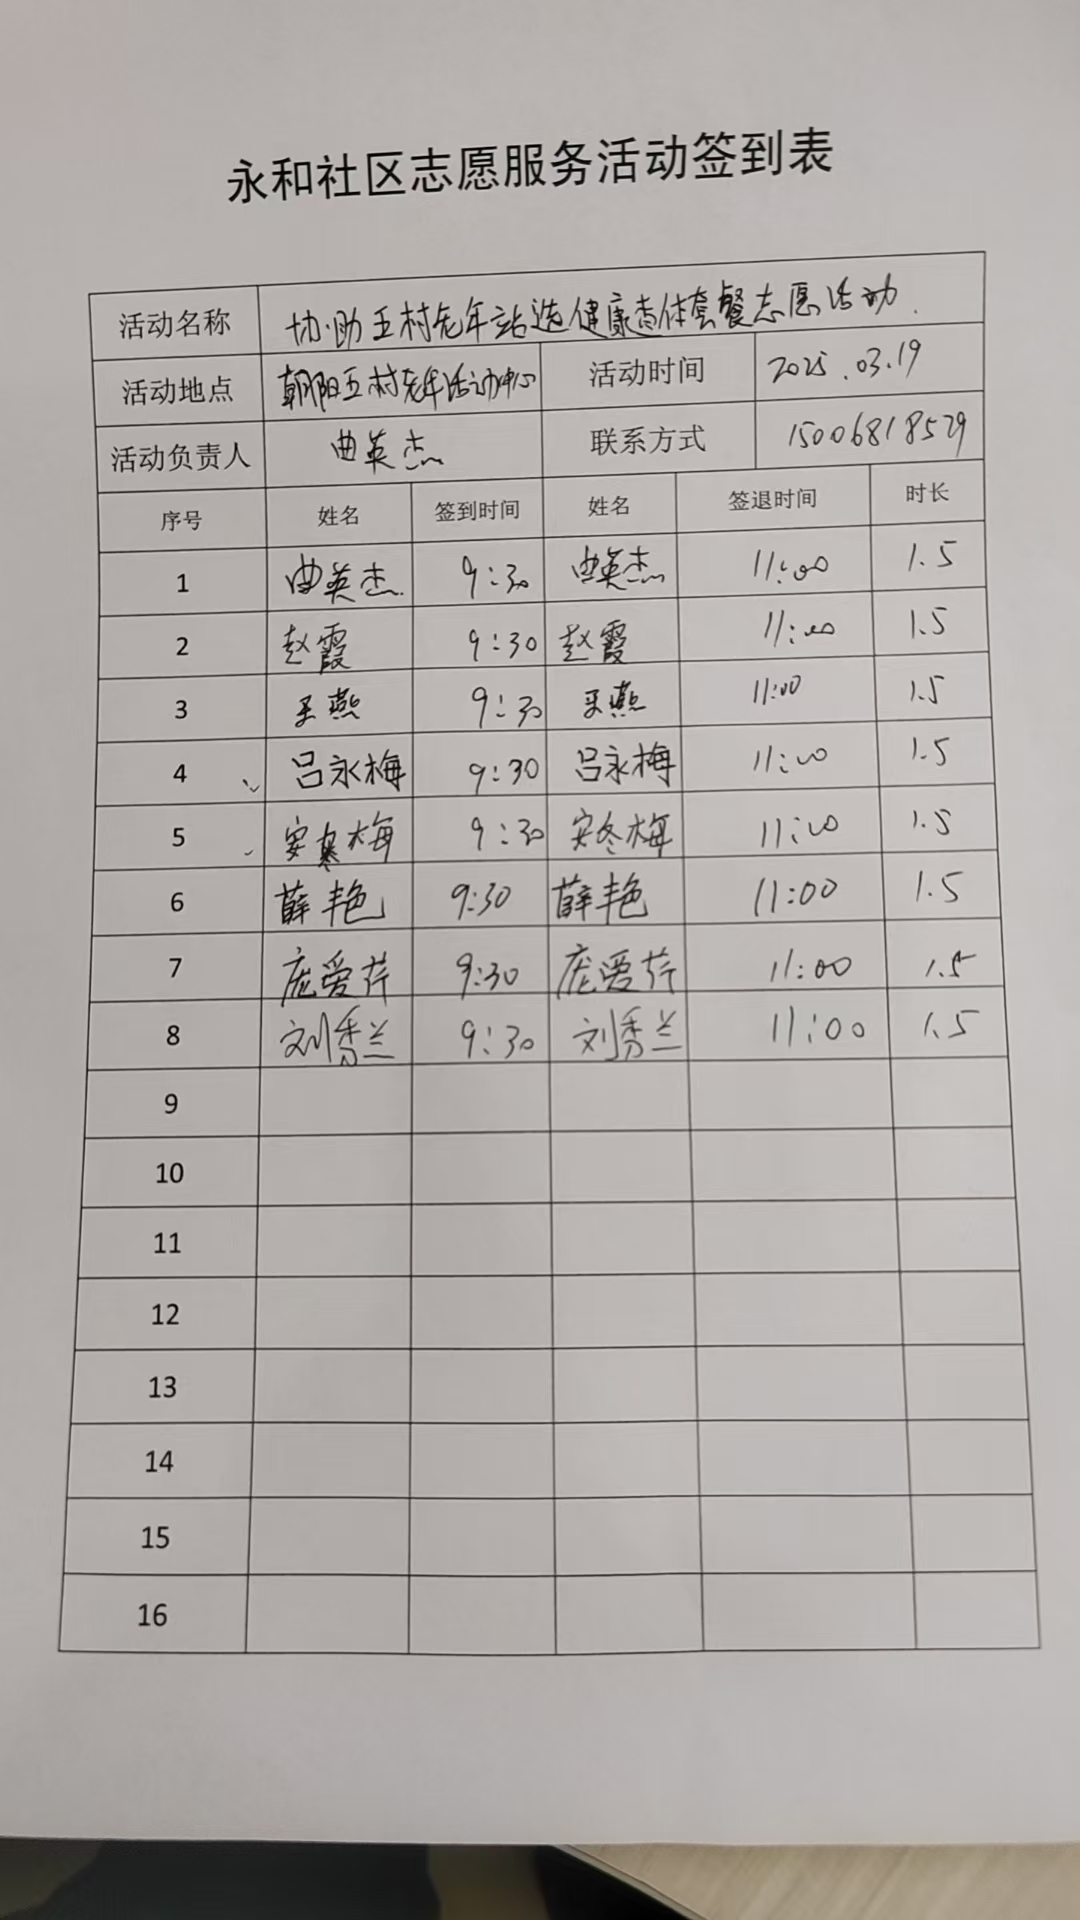 永和社区志愿服务活动签到表
活动名称 协助五村老年站选健康查体套餐志愿活动.
活动地点 朝阳五村老年活动中心 活动时间 2025.03.19
活动负责人 曲英杰 联系方式 15006818529
序号 姓名 签到时间 姓名 签退时间 时长
1 曲英杰 9:30 曲英杰 11:00 1.5
2 赵霞 9:30 赵霞 11:00 1.5
3 王燕 9:30 王燕 11:00 1.5
4 吕永梅 9:30 吕永梅 11:00 1.5
5 安寒梅 9:30 安冬梅 11:00 1.5
6 薛丰艳 9:30 薛丰艳 11:00 1.5
7 庞爱芹 9:30 庞爱芹 11:00 1.5
8 刘秀兰 9:30 刘秀兰 11:00 1.5
9
10
11
12
13
14
15
16